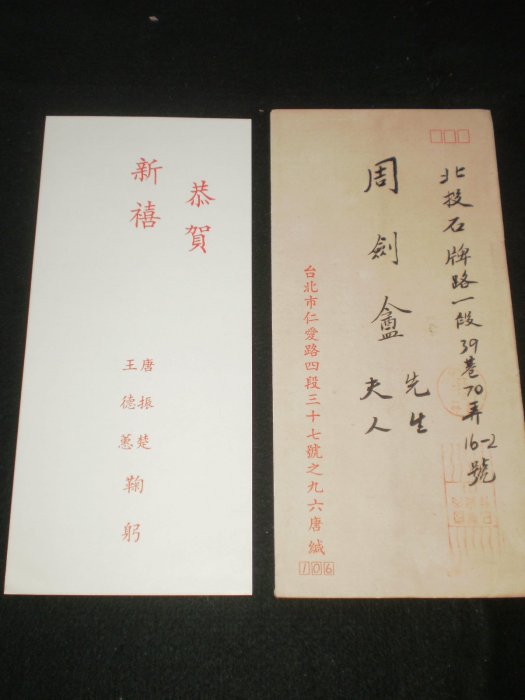 恭賀
新禧
唐振楚
王德蕙
鞠躬
北投石牌路一段39巷70弄16-2號
周劍盦
先生
夫人
台北市仁愛路四段三十七號之九六唐緘
106